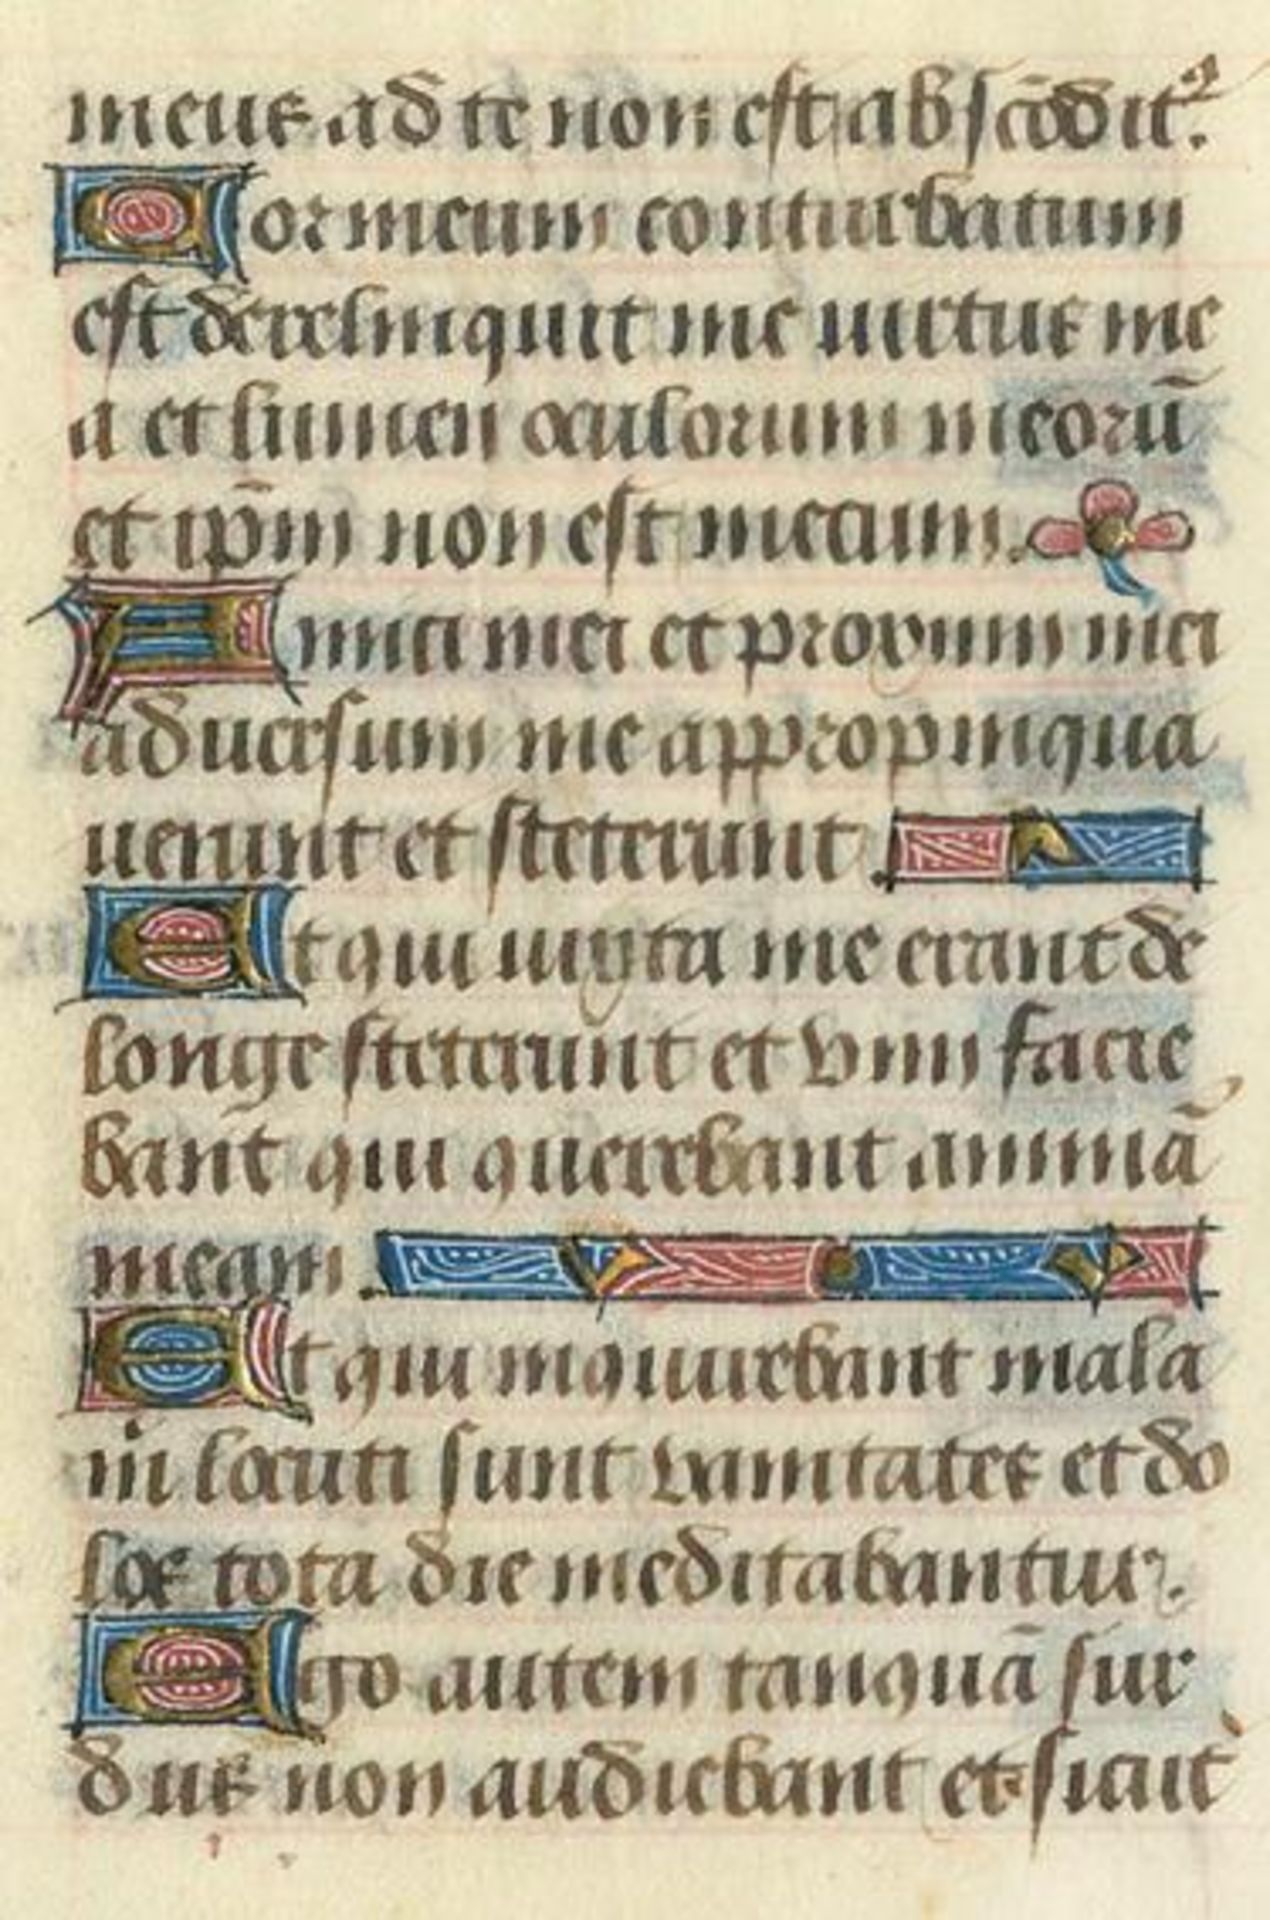 meus a te non est abscōdit᷒.
Cor meum conturbatum
est dereliquit me uirtus me
a et lumen oculorum meorū
et ip̄m non est mecum.
Amici mei et proximi mei
aduersum me appropinqua
uerunt et steterunt.
Et qui iuxta me erant de
longe steterunt et vim facie
bant qui querebant animā
meam.
Et qui inquirebant mala
m̄ locuti sunt vanitates et do
los tota die meditabantur.
Ego autem tanquā sur
dus non audiebant et sicut